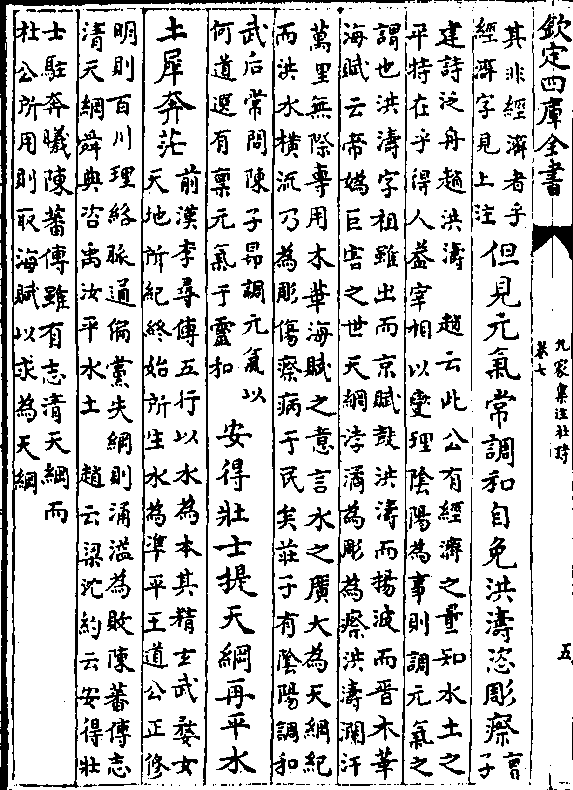 欽定四庫全書
九家集注杜詩
卷七
五
其非經濟者乎
經濟字見上注
但見元氣常調和自免洪濤恣彫瘵
曹
子
建詩泛舟趙洪濤 趙云此公有經濟之量知水土之
平特在乎得人葢宰相以爕理陰陽為事則調元氣之
謂也洪濤字祖雖出而京賦鼓洪濤而揚波而晉木華
海賦云帝媯巨害之世天綱浡潏為彫為瘵洪濤瀾汗
萬里無際專用木華海賦之意言水之廣大為天綱紀
而洪水橫流乃為彫傷瘵病于民矣莊子有陰陽調和
武后常問陳子昂調元氣以
何道選有稟元氣于靈和
安得壯士提天綱再平水
土犀奔茫
前漢李尋傳五行以水為本其精士武婺女
天地所紀終始所生水為準平王道公正修
明則百川理絡脈通偏黨失綱則涌溢為敗陳蕃傳志
清天綱舜典咨禹汝平水土 趙云梁沈約云安得壯
士駐奔曦陳蕃傳雖有志清天綱而
杜公所用則取海賦以求為天綱